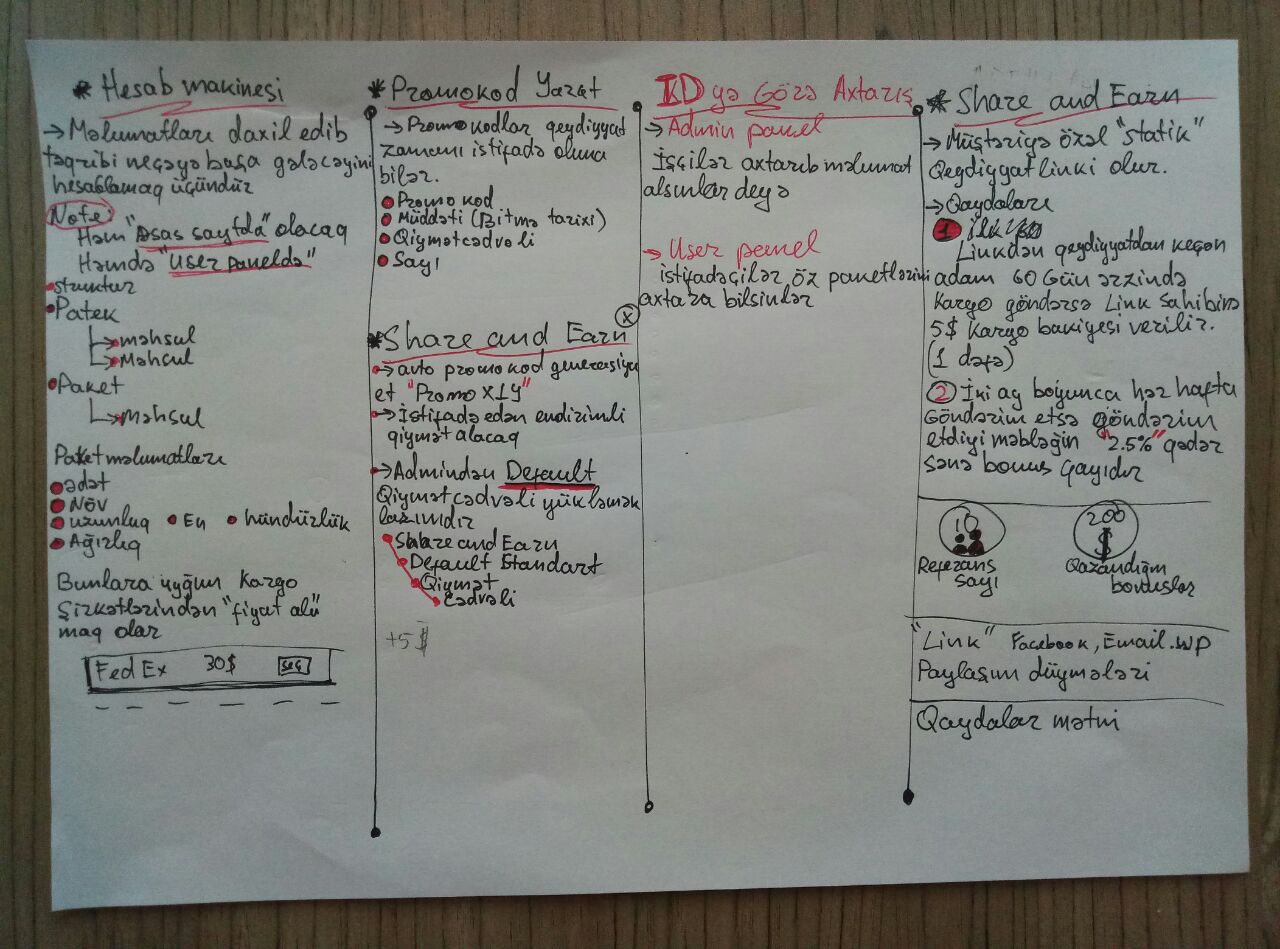 * Hesab makinesi
→ Məlumatları daxil edib
təqribi neçəyə başa gələcəyini
hesablamaq üçündür
Note:
Həm "Əsas saytda" olacaq
Həmdə "User paneldə"
• struktur
• Patek
↳ məhsul
↳ Məhsul
• Paket
↳ məhsul
Paket məlumatları
• ədət
• Növ
• uzunluq • En • hündüzlük
• Ağızlıq
Bunlara uyğun Kargo
Şirkətlərindən "fiyat alı"
maq olar
FedEx 30$ seç
* Promokod Yarat
→ Promokodlar qeydiyyat
zamanı istifadə oluna
bilər.
• Promo kod
• Müddəti (Bitmə tarixi)
• Qiymətcədvəli
• Sayı
* Share and Earn
x
→ avto promokod generasiya
et "Promo X1Y"
→ İstifadə edən endirimli
qiymət alacaq
→ Admindən Default
Qiymət cədvəli yükləmək
lazımdır
• Share and Earn
• Default Standart
• Qiymət
• Cədvəli
+5$
İD yə Görə Axtarış
→ Admin panel
İşçilər axtarıb məlumat
alsınlar deyə
→ User panel
istifadəçilər öz paketlərini
axtara bilsinlər
* Share and Earn
→ Müştəriyə özəl "statik"
Qeydiyyat linki olur.
→ Qaydaları
1 ilk
Linkdən qeydiyyatdan keçən
adam 60 Gün ərzində
Kargo göndərsə Link sahibinə
5$ Kargo bakiyesi verilir.
(1 dəfə)
2 İki ay boyunca hər hafta
Göndərim etsə göndərim
etdiyi məbləğin "2.5%" qədər
sənə bonus qayıdır
10
Referans
sayı
200
$
Qazandığım
bonuslar
"Link" Facebook, Email. WP
Paylaşım düymələri
Qaydalar mətni